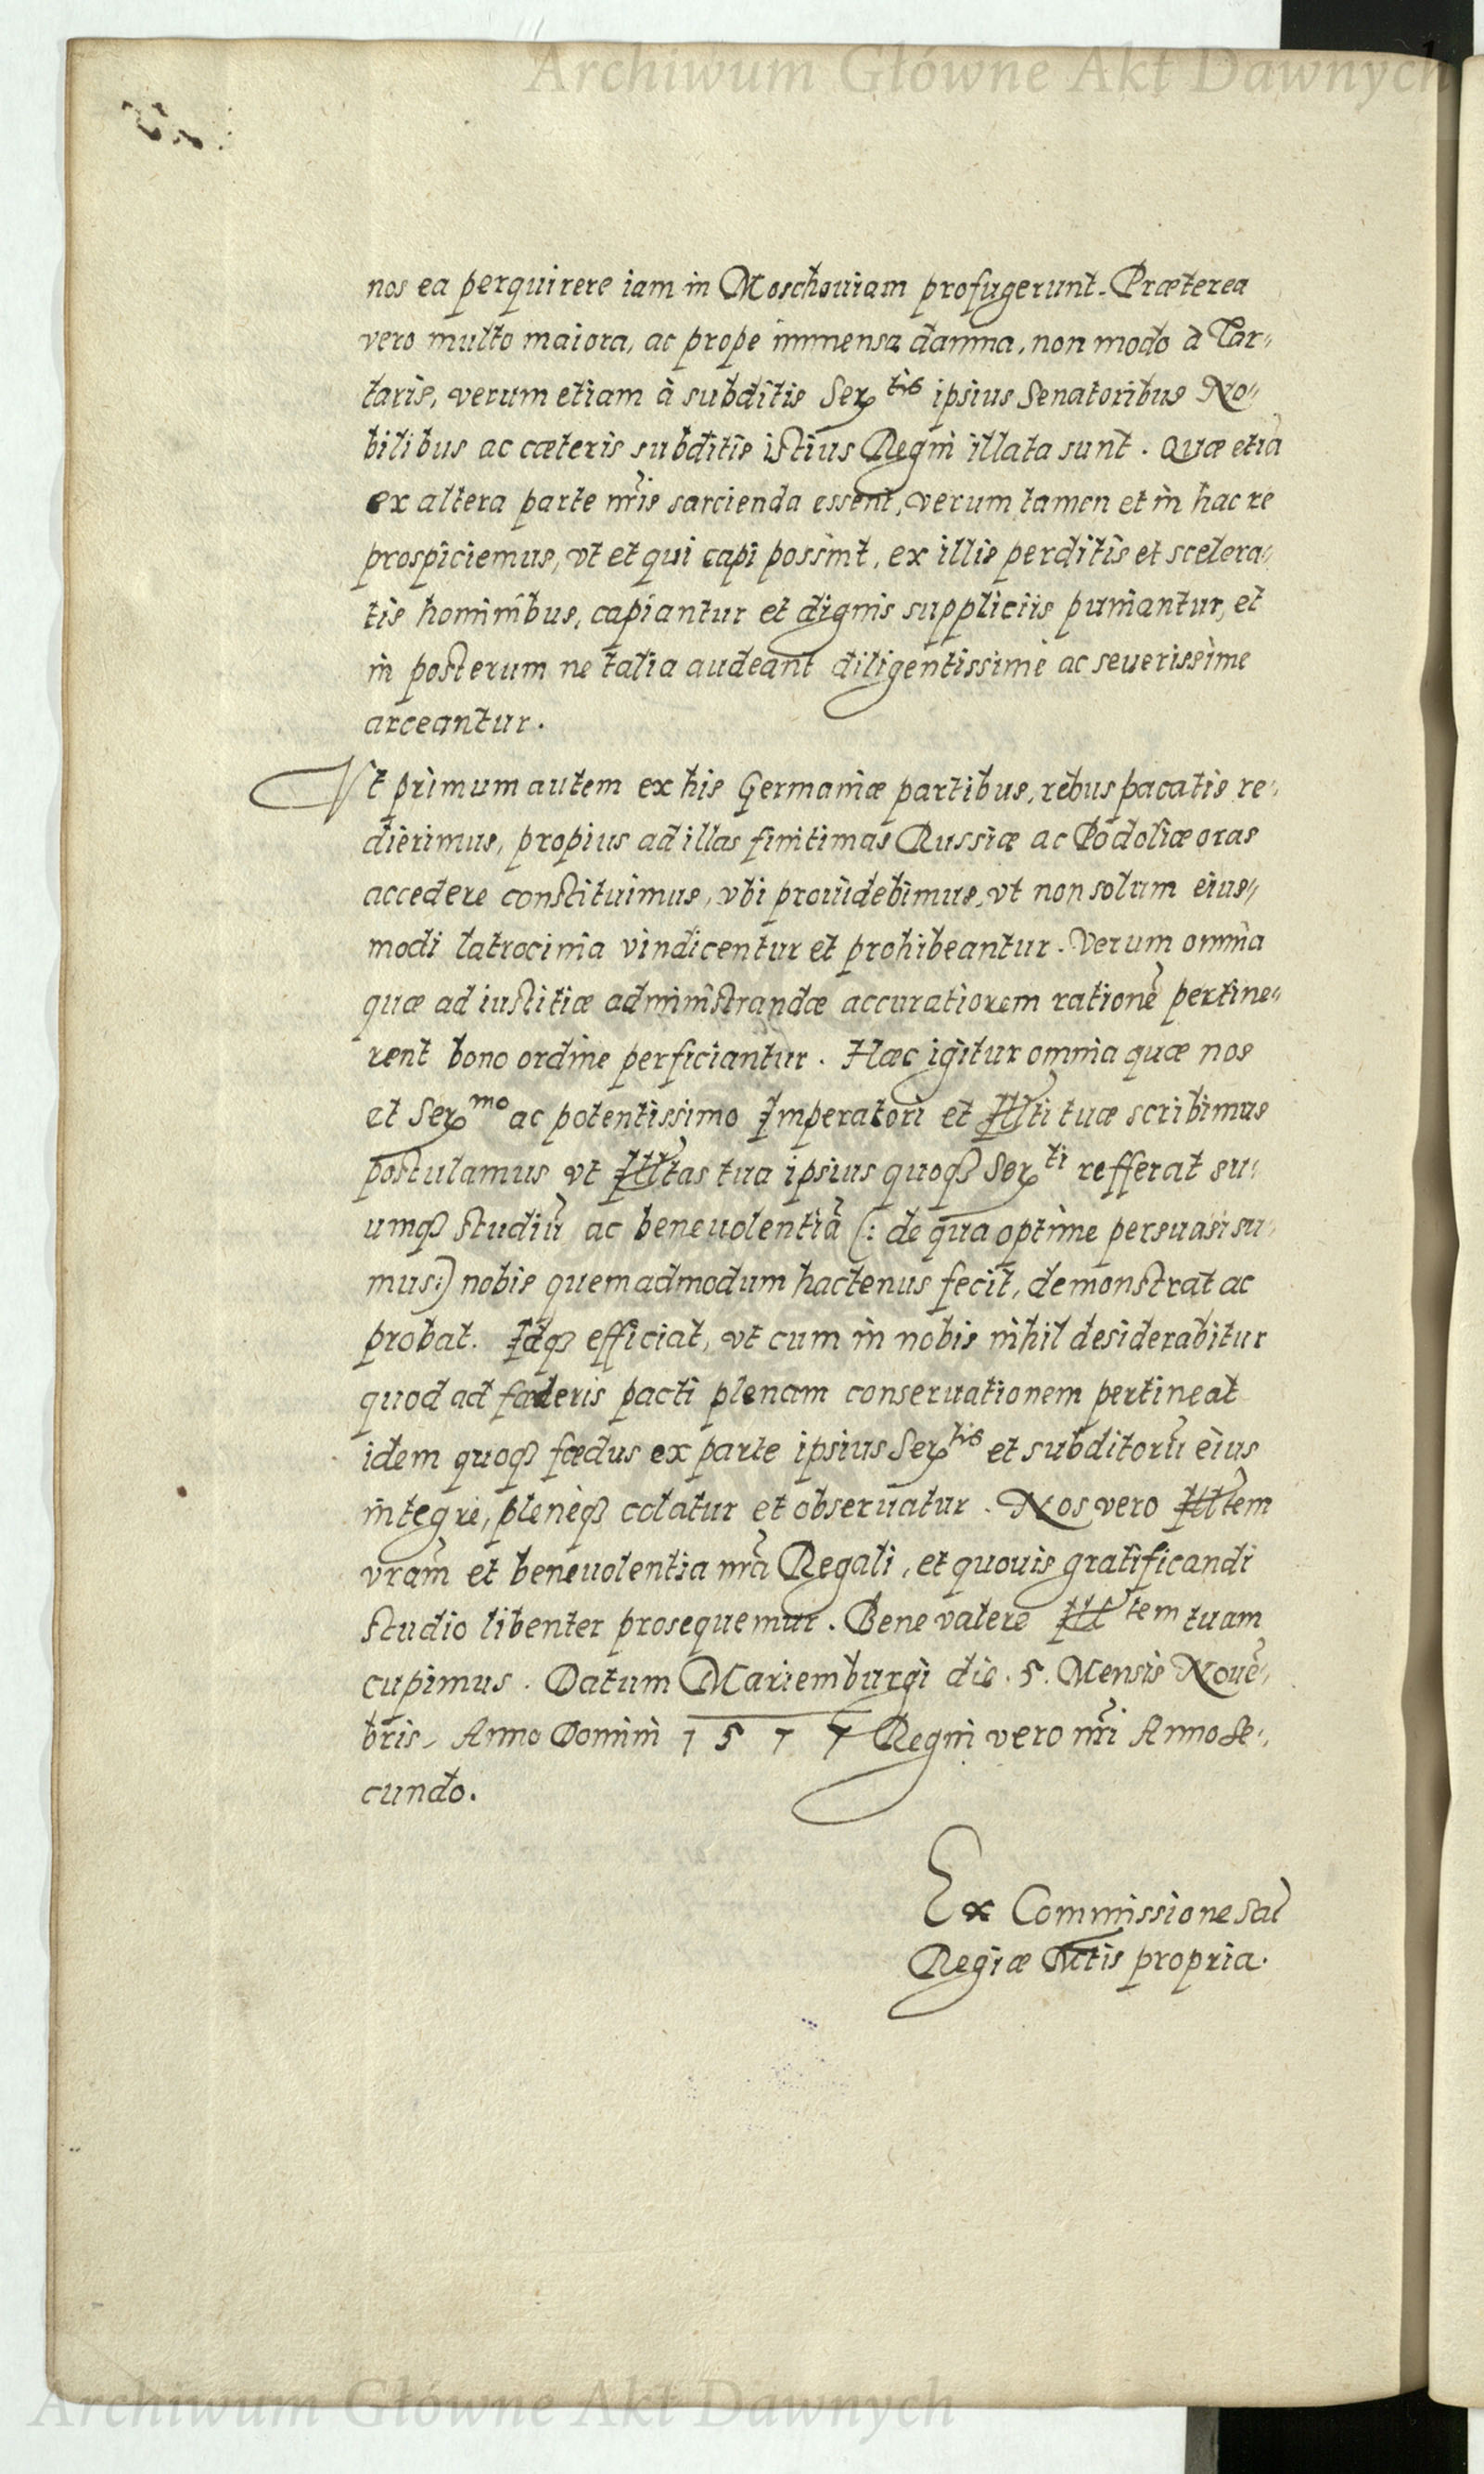 Archiwum Główne Akt Dawnych
nos ea perquirere iam in Moschouiam profugerunt. Præterea
vero multo maiora, ac prope immensa damna, non modo à Tar„
taris, verum etiam à subditis Ser^tis ipsius Senatoribus No„
bilibus ac cæteris subditis istius Regni illata sunt. Quæ etiã
ex altera parte nr̃is sarcienda essent, verum tamen et in hac re
prospiciemus, vt et qui capi possint, ex illis perditis et scelera„
tis hominibus, capiantur et dignis suppliciis puniantur, et
in posterum ne talia audeant diligentissime ac seuerissime
arceantur.
Vt primum autem ex his Germaniæ partibus, rebus pacatis re„
dierimus, propius ad illas finitimas Russiæ ac Podoliæ oras
accedere constituimus, vbi prouidebimus, vt non solum eius„
modi latrocinia vindicentur et prohibeantur. Verum omnia
quæ ad iustitiæ administrandæ accuratiorem rationẽ pertine„
rent bono ordine perficiantur. Hæc igitur omnia quæ nos
et Ser^mo ac potentissimo Imperatori et Illti tuæ scribimus
postulamus vt Illtas tua ipsius quoqꝫ Ser^ti refferat su„
umqꝫ studiũ ac beneuolentiã (: de qua optime persuasi su„
mus:) nobis quemadmodum hactenus fecit, demonstrat ac
probat. Idqꝫ efficiat, vt cum in nobis nihil desiderabitur
quod ad fœderis pacti plenam conseruationem pertineat
idem quoqꝫ fœdus ex parte ipsius Ser^tis et subditorũ eius
integre, pleneqꝫ colatur et obseruatur. Nos vero Illtem
vrãm et beneuolentia nrã Regali, et quouis gratificandi
studio libenter prosequemur. Bene valere Ill^tem tuam
cupimus. Datum Mariemburgi die. 5. Mensis Nouẽ„
bris, Anno Domini 1577 Regni vero nr̃i Anno Se„
cundo.
Ex Commissione Sac̃
Regiæ Mtis propria.
Archiwum Główne Akt Dawnych